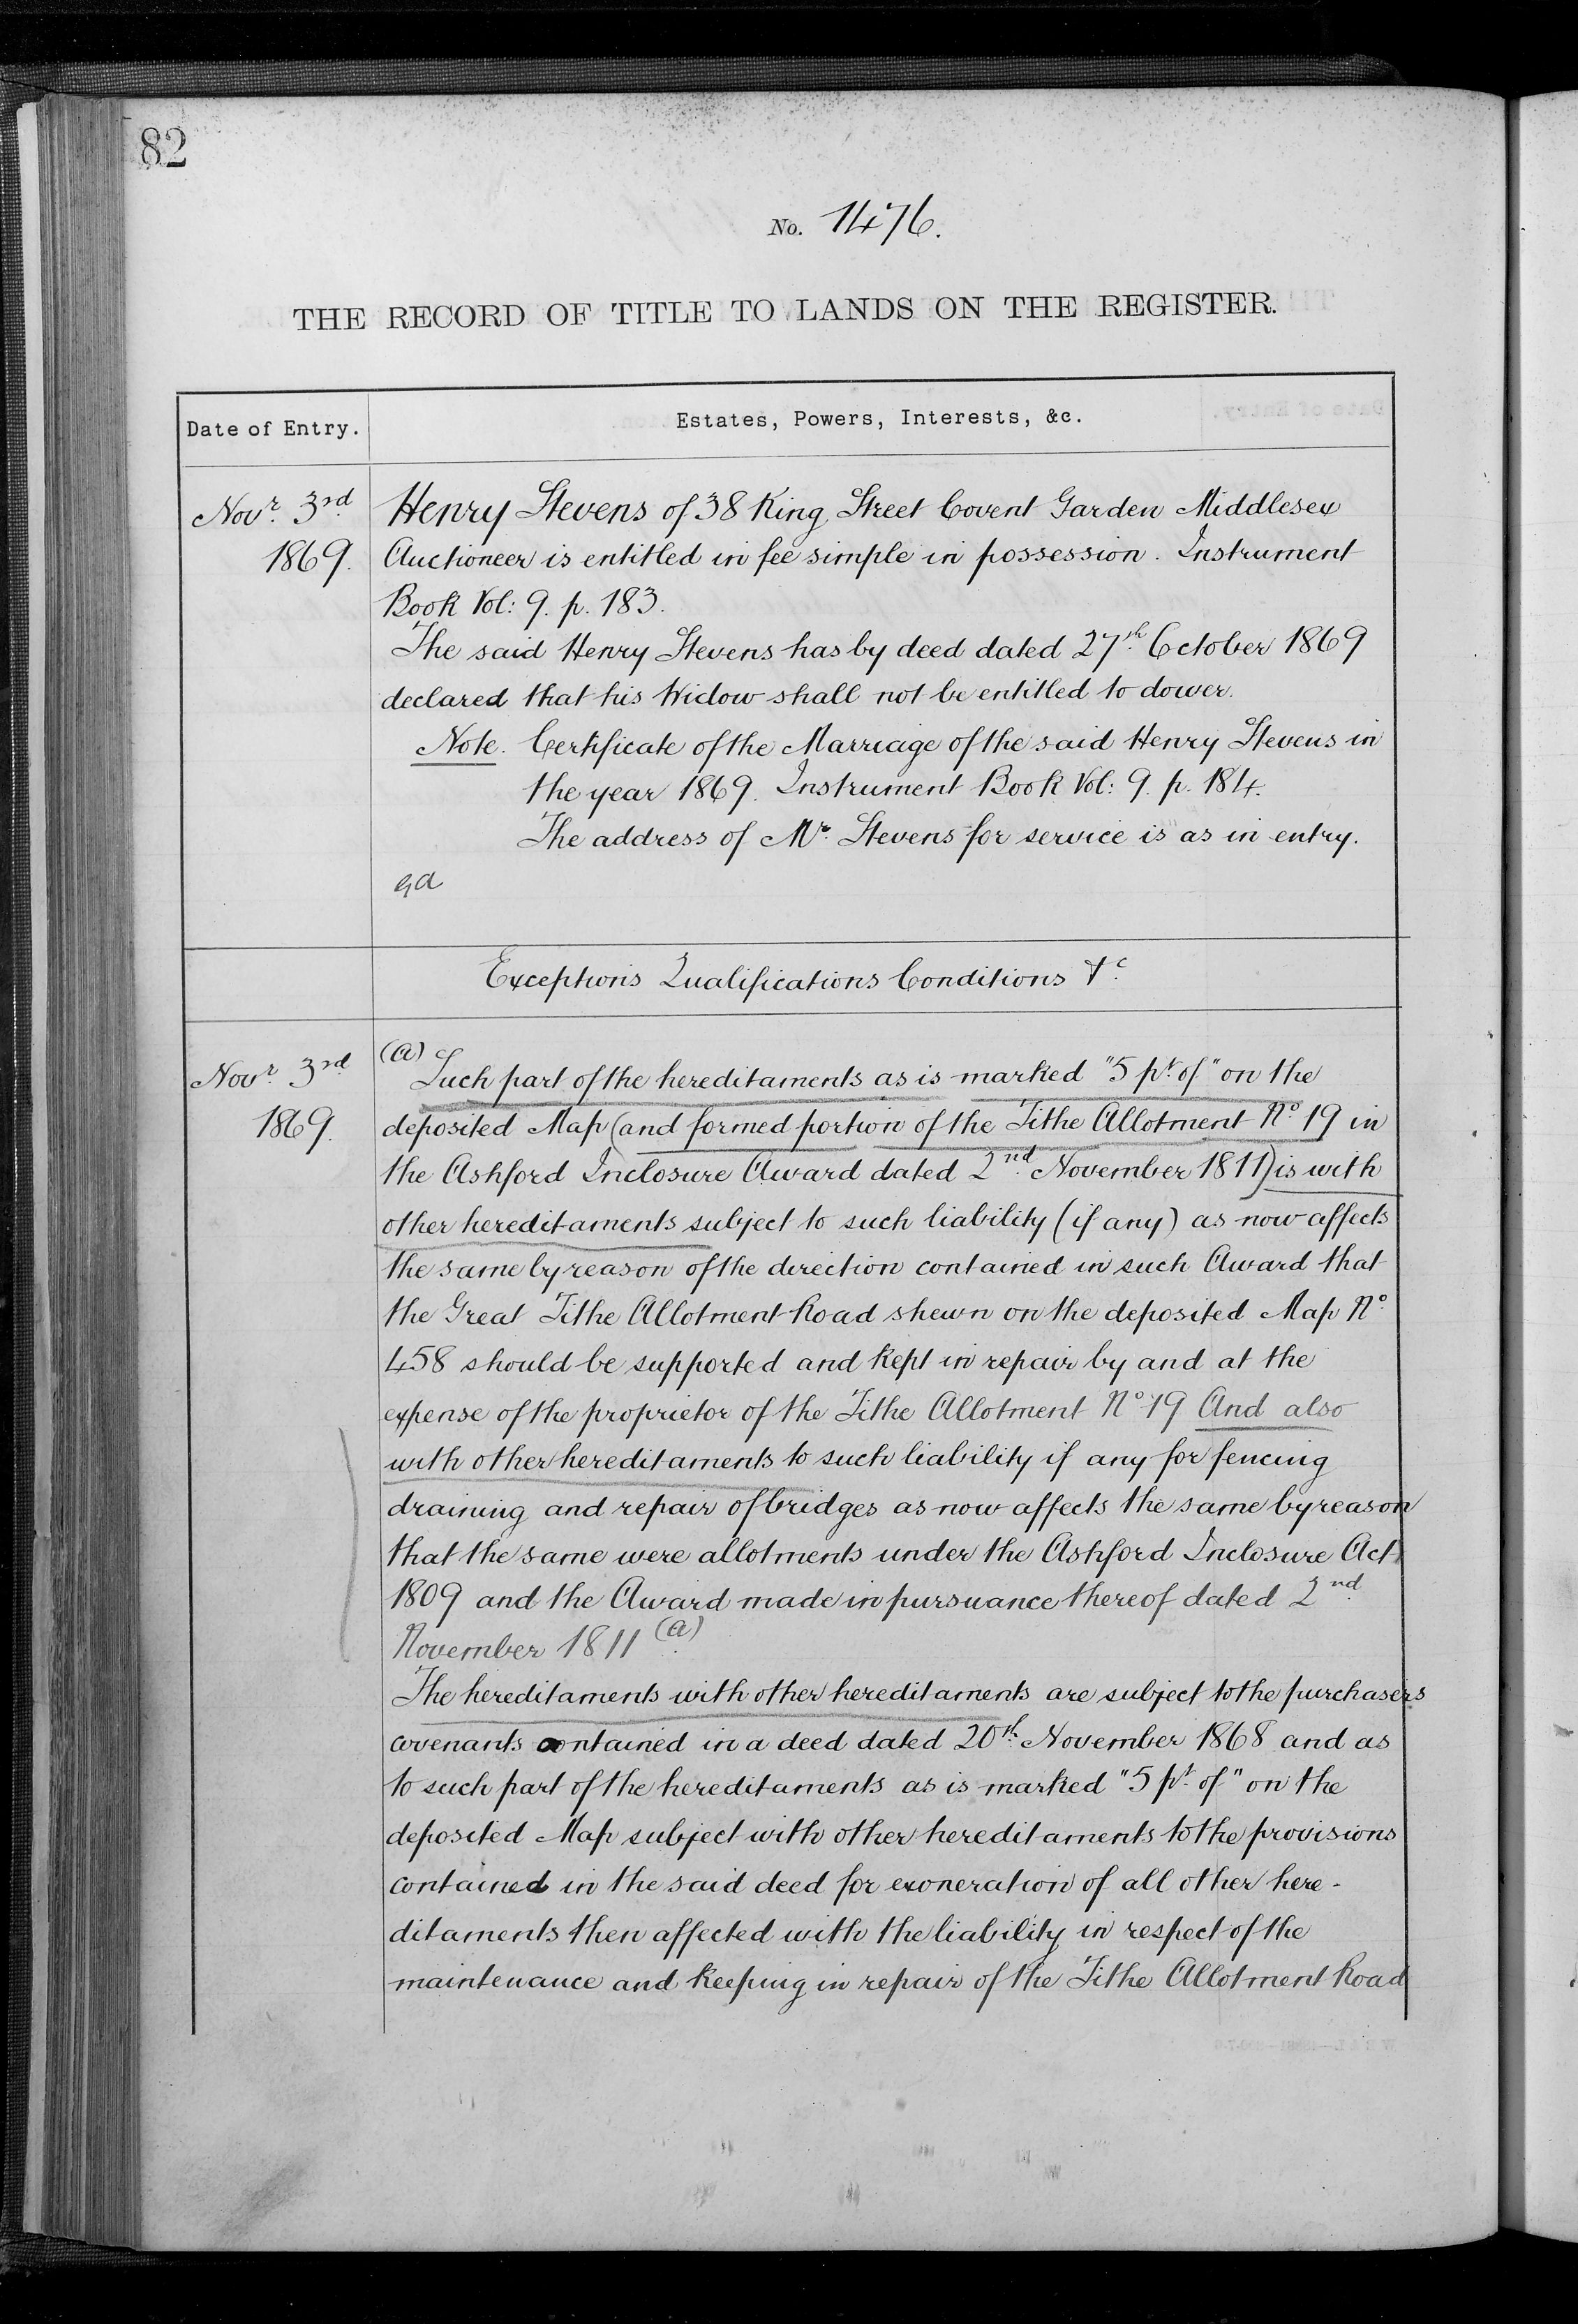 82
No. 1476.
THE RECORD OF TITLE TO LANDS ON THE REGISTER.
Date of Entry.
Estates, Powers, Interests, &c.
Novr. 3rd
1869.
Henry Stevens of 38 King Street Covent Garden Middlesex
Auctioneer is entitled in fee simple in possession. Instrument
Book Vol: 9. p. 183.
The said Henry Stevens has by deed dated 27th October 1869
declared that his Widow shall not be entitled to dower.
Note. Certificate of the Marriage of the said Henry Stevens in
the year 1869. Instrument Book Vol: 9. p. 184.
The address of Mr. Stevens for service is as in entry.
Exceptions Qualifications Conditions &c.
Novr. 3rd
1869.
(a) Such part of the hereditaments as is marked "5 pt. of" on the
deposited Map (and formed portion of the Tithe Allotment No. 19 in
the Ashford Inclosure Award dated 2nd November 1811) is with
other hereditaments subject to such liability (if any) as now affects
the same by reason of the direction contained in such Award that
the Great Tithe Allotment Road shewn on the deposited Map No.
458 should be supported and kept in repair by and at the
expense of the proprietor of the Tithe Allotment No. 19 And also
with other hereditaments to such liability if any for fencing
draining and repair of bridges as now affects the same by reason
that the same were allotments under the Ashford Inclosure Act
1809 and the Award made in pursuance thereof dated 2nd
November 1811 (a)
The hereditaments with other hereditaments are subject to the purchasers
covenants contained in a deed dated 20th November 1868 and as
to such part of the hereditaments as is marked "5 pt. of" on the
deposited Map subject with other hereditaments to the provisions
contained in the said deed for exoneration of all other here-
ditaments then affected with the liability in respect of the
maintenance and keeping in repair of the Tithe Allotment Road